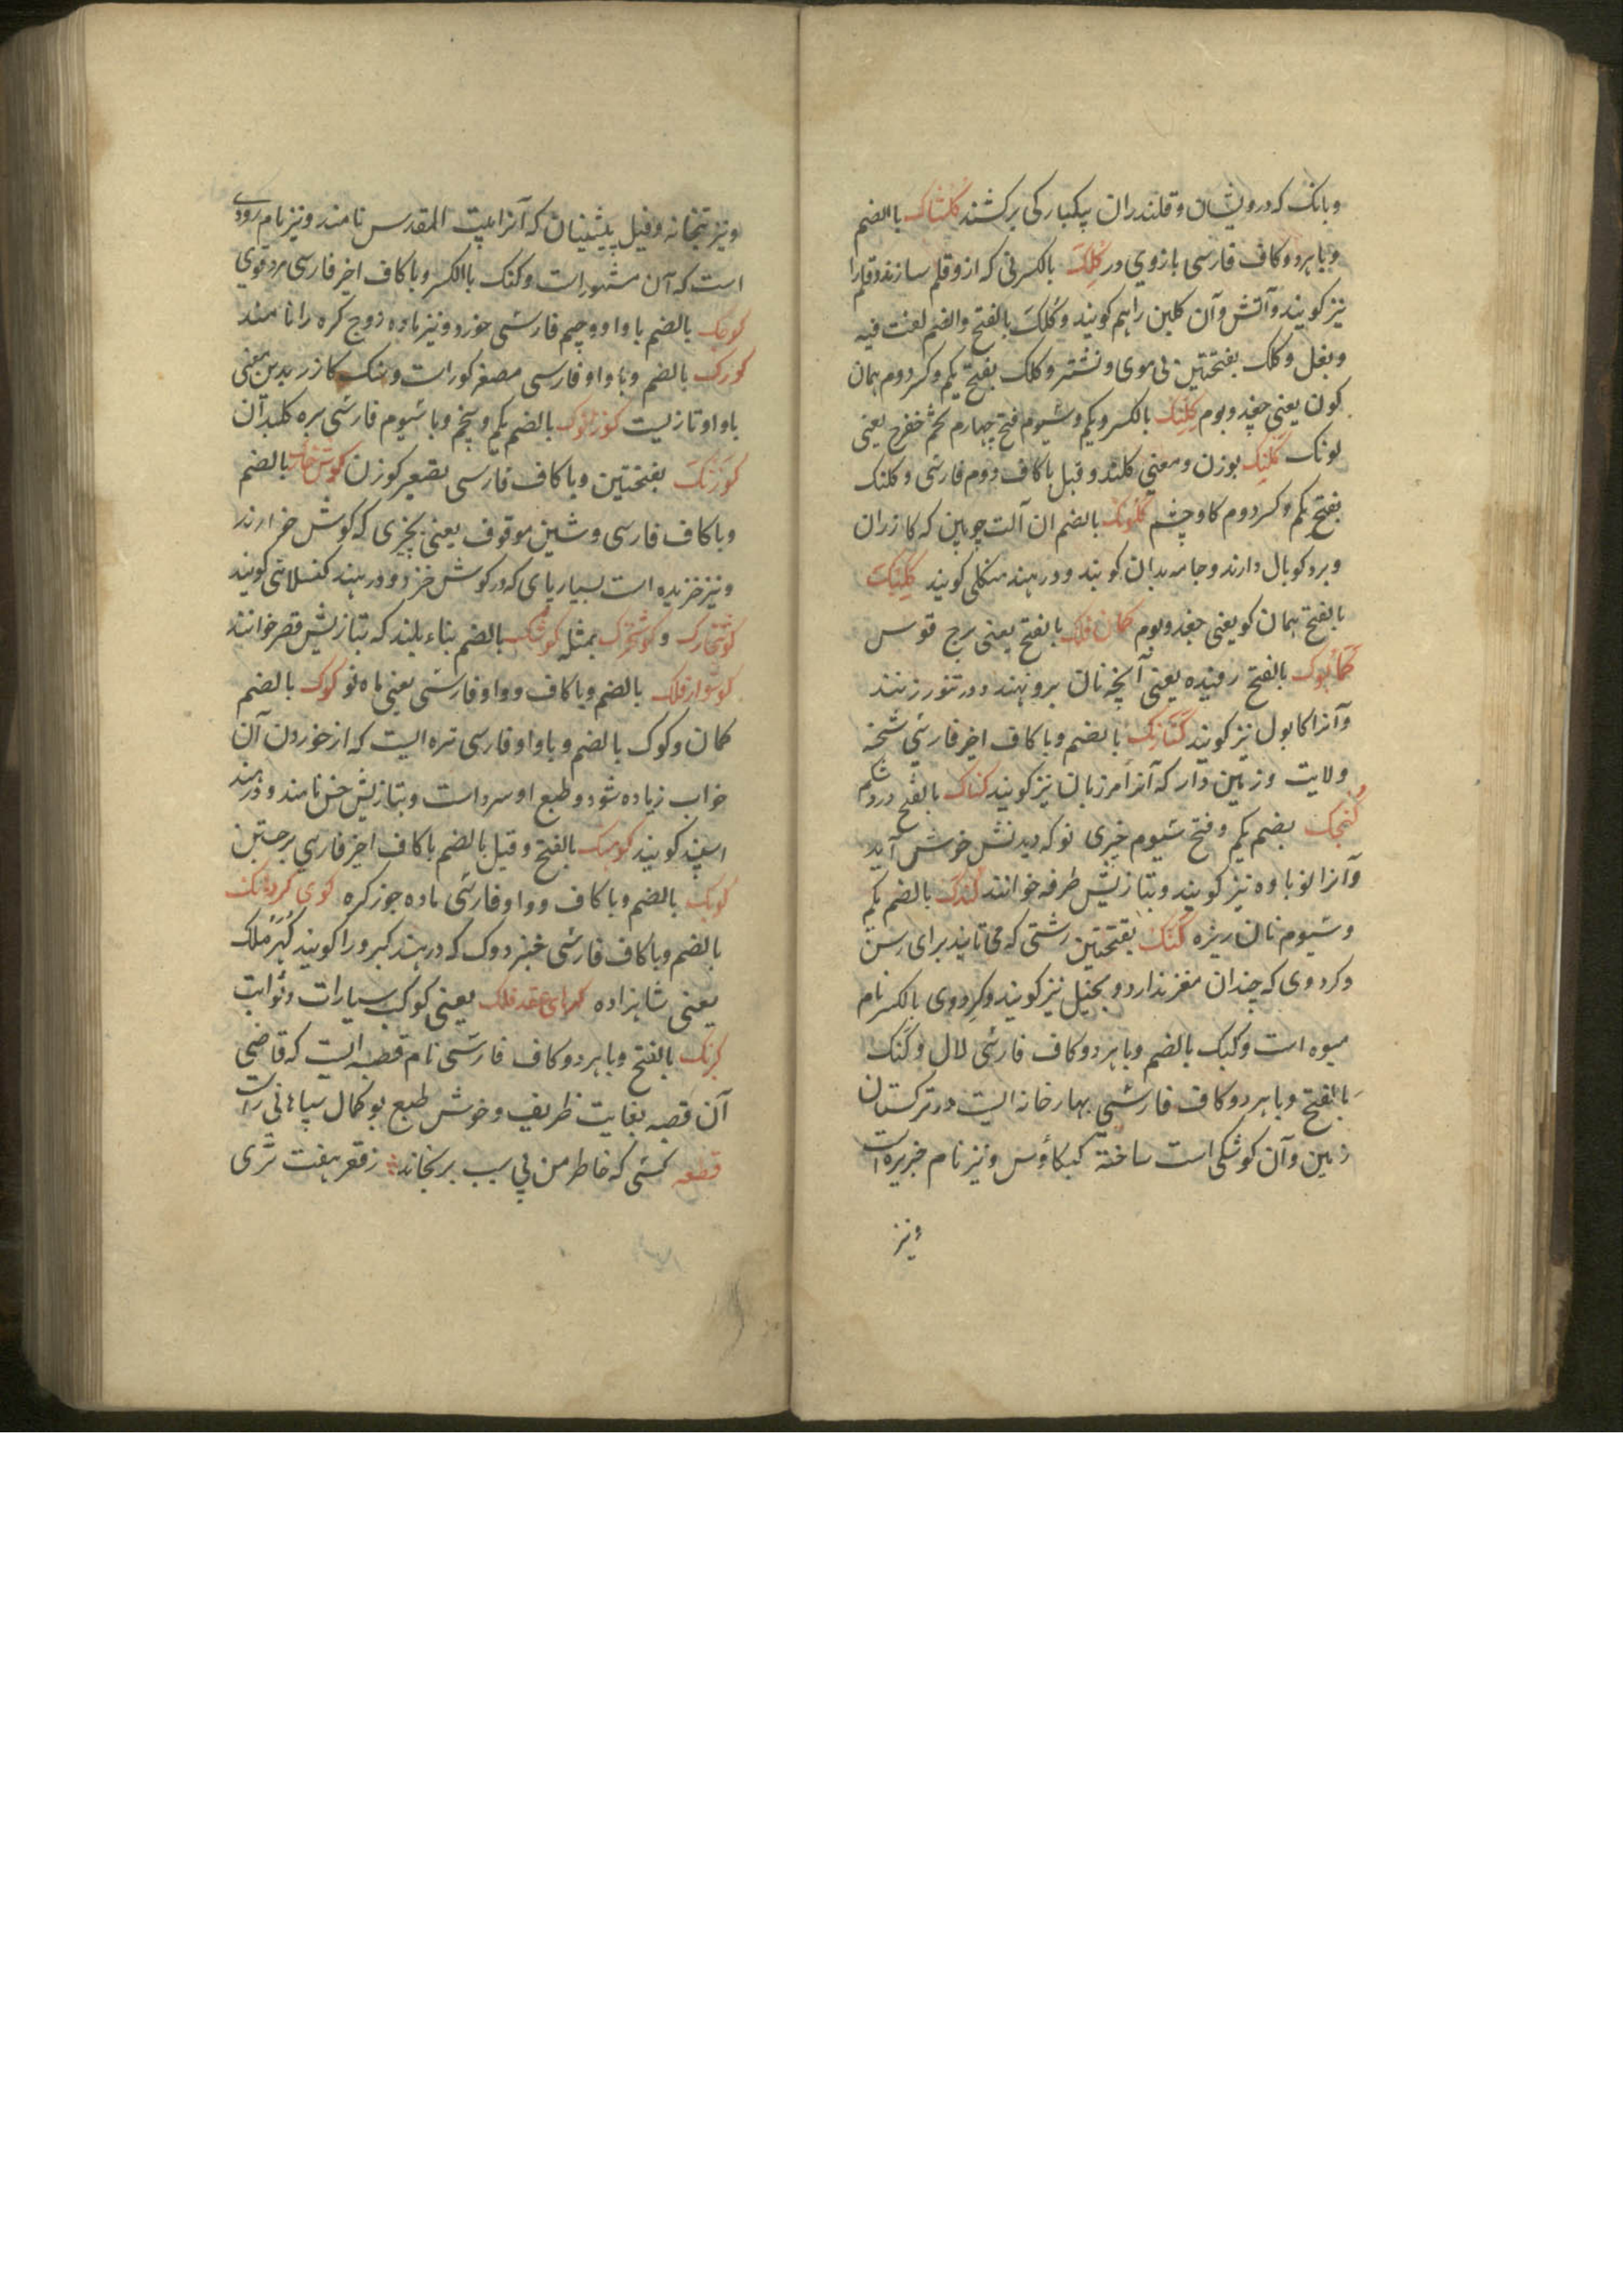 وبانک که درویشان و قلندران بیکبارکی برکشند کلشاک بالضم
وباهردو کاف فارسی بازوی در کلک بالکسر نی که ازو قلم سازند و قلم را
نیز کویند وآتش وآن کلین راهم کویند وکلک بالفتح والضم لغت فیه
وبغل وکلک بفتحتین بی موی ونشتر وکلک بفتح یکم وکسر دوم همان
کون یعنی چغد وبوم کلنک بالکسر ویکم وسیوم فتح چهارم تخم خفرج یعنی
لونک کلنک بوزن ومعنی کلند وقیل باکاف دوم فارسی وکلنک
بفتح یکم وکسر دوم کاوچشم کلونک بالضم ان آلت چوبین که کازران
وبرد کوبال دارند وجامه بدان کوبند ودر هند منکلی کویند کلیک
بالفتح همان کو یعنی جغد وبوم کمان فلک بالفتح یعنی برج قوس
کمابوک بالفتح رفیده یعنی آنچه نان برو نهند ودر تنور زنند
وآنرا کابول نیز کویند کنارنک بالضم وباکاف اخیر فارسی شحنه
ولایت وزمین دار که آنرا مرزبان نیز کویند کناک بالفتح درد شکم
کنجک بضم یکم وفتح سیوم خبری نو که دیدنش خوش آید
وآنرا نوباوه نیز کویند وبتازیش طرفه خوانند کندک بالضم یکم
وسیوم نان ریزه کنک بفتحتین رشتی که می تابند برای رسن
وکردوی که چندان مغز ندارد وبخیل نیز کویند وکردوی بالکسر نام
میوه است وکنک بالضم وباهردو کاف فارسی لال وکنک
بالفتح وباهردو کاف فارسی بهارخانه ایست در ترکستان
زمین وآن کوشکی است ساخته کیکاوس ونیز نام جزیره است
ونیز
ونیز بتخانه وقیل پیشینیان که آنرا بیت المقدس نامند ونیز نام رودی
است که آن مشهور است وکنک بالکسر وباکاف اخیر فارسی مرد قوی
کوجک بالضم باواو وجیم فارسی خورد ونیز ماده زوج کره را نامند
کورک بالضم وباواو فارسی مصغر کور است وسنک کازر بدین معنی
باواو تازیست کوزلوک بالضم یکم وپنجم وباسیوم فارسی بره کلبدان
کوزنک بفتحتین وباکاف فارسی بقیعر کوزن کوش خارک بالضم
وباکاف فارسی وشین موقوف یعنی بچیزی که کوش خارند
ونیز خزیده است بسیار پای که در کوش خزد ودر هند کنسلائی کویند
کوشخارک وکوشخزک بمثله کوشک بالضم بناء بلند که بتازیش قصر خوانند
کوشوار فلک بالضم وباکاف وواو فارسی یعنی ماه نو کوک بالضم
کمان وکوک بالضم وباواو فارسی تره ایست که از خوردن آن
خواب زیاده شود وطبع او سرد است وبتازیش خس نامند ودر هند
اسپند کویند کوهنک بالفتح وقیل بالضم باکاف اخیر فارسی برجستن
کوپک بالضم وباکاف وواو فارسی ماده جوز کره کوی کردنک
بالضم وباکاف فارسی خبزدوک که در هند کبرورا کویند کهرملک
یعنی شاهزاده کهربای عقد فلک یعنی کوکب سیارات وثوابت
کرنک بالفتح وباهردو کاف فارسی نام قصبه ایست که قاضی
آن قصبه بغایت ظریف وخوش طبع بو کمال سپاهانی راست
قطعه کسی که خاطر من بی سبب برنجاند زقعر هفت ثری